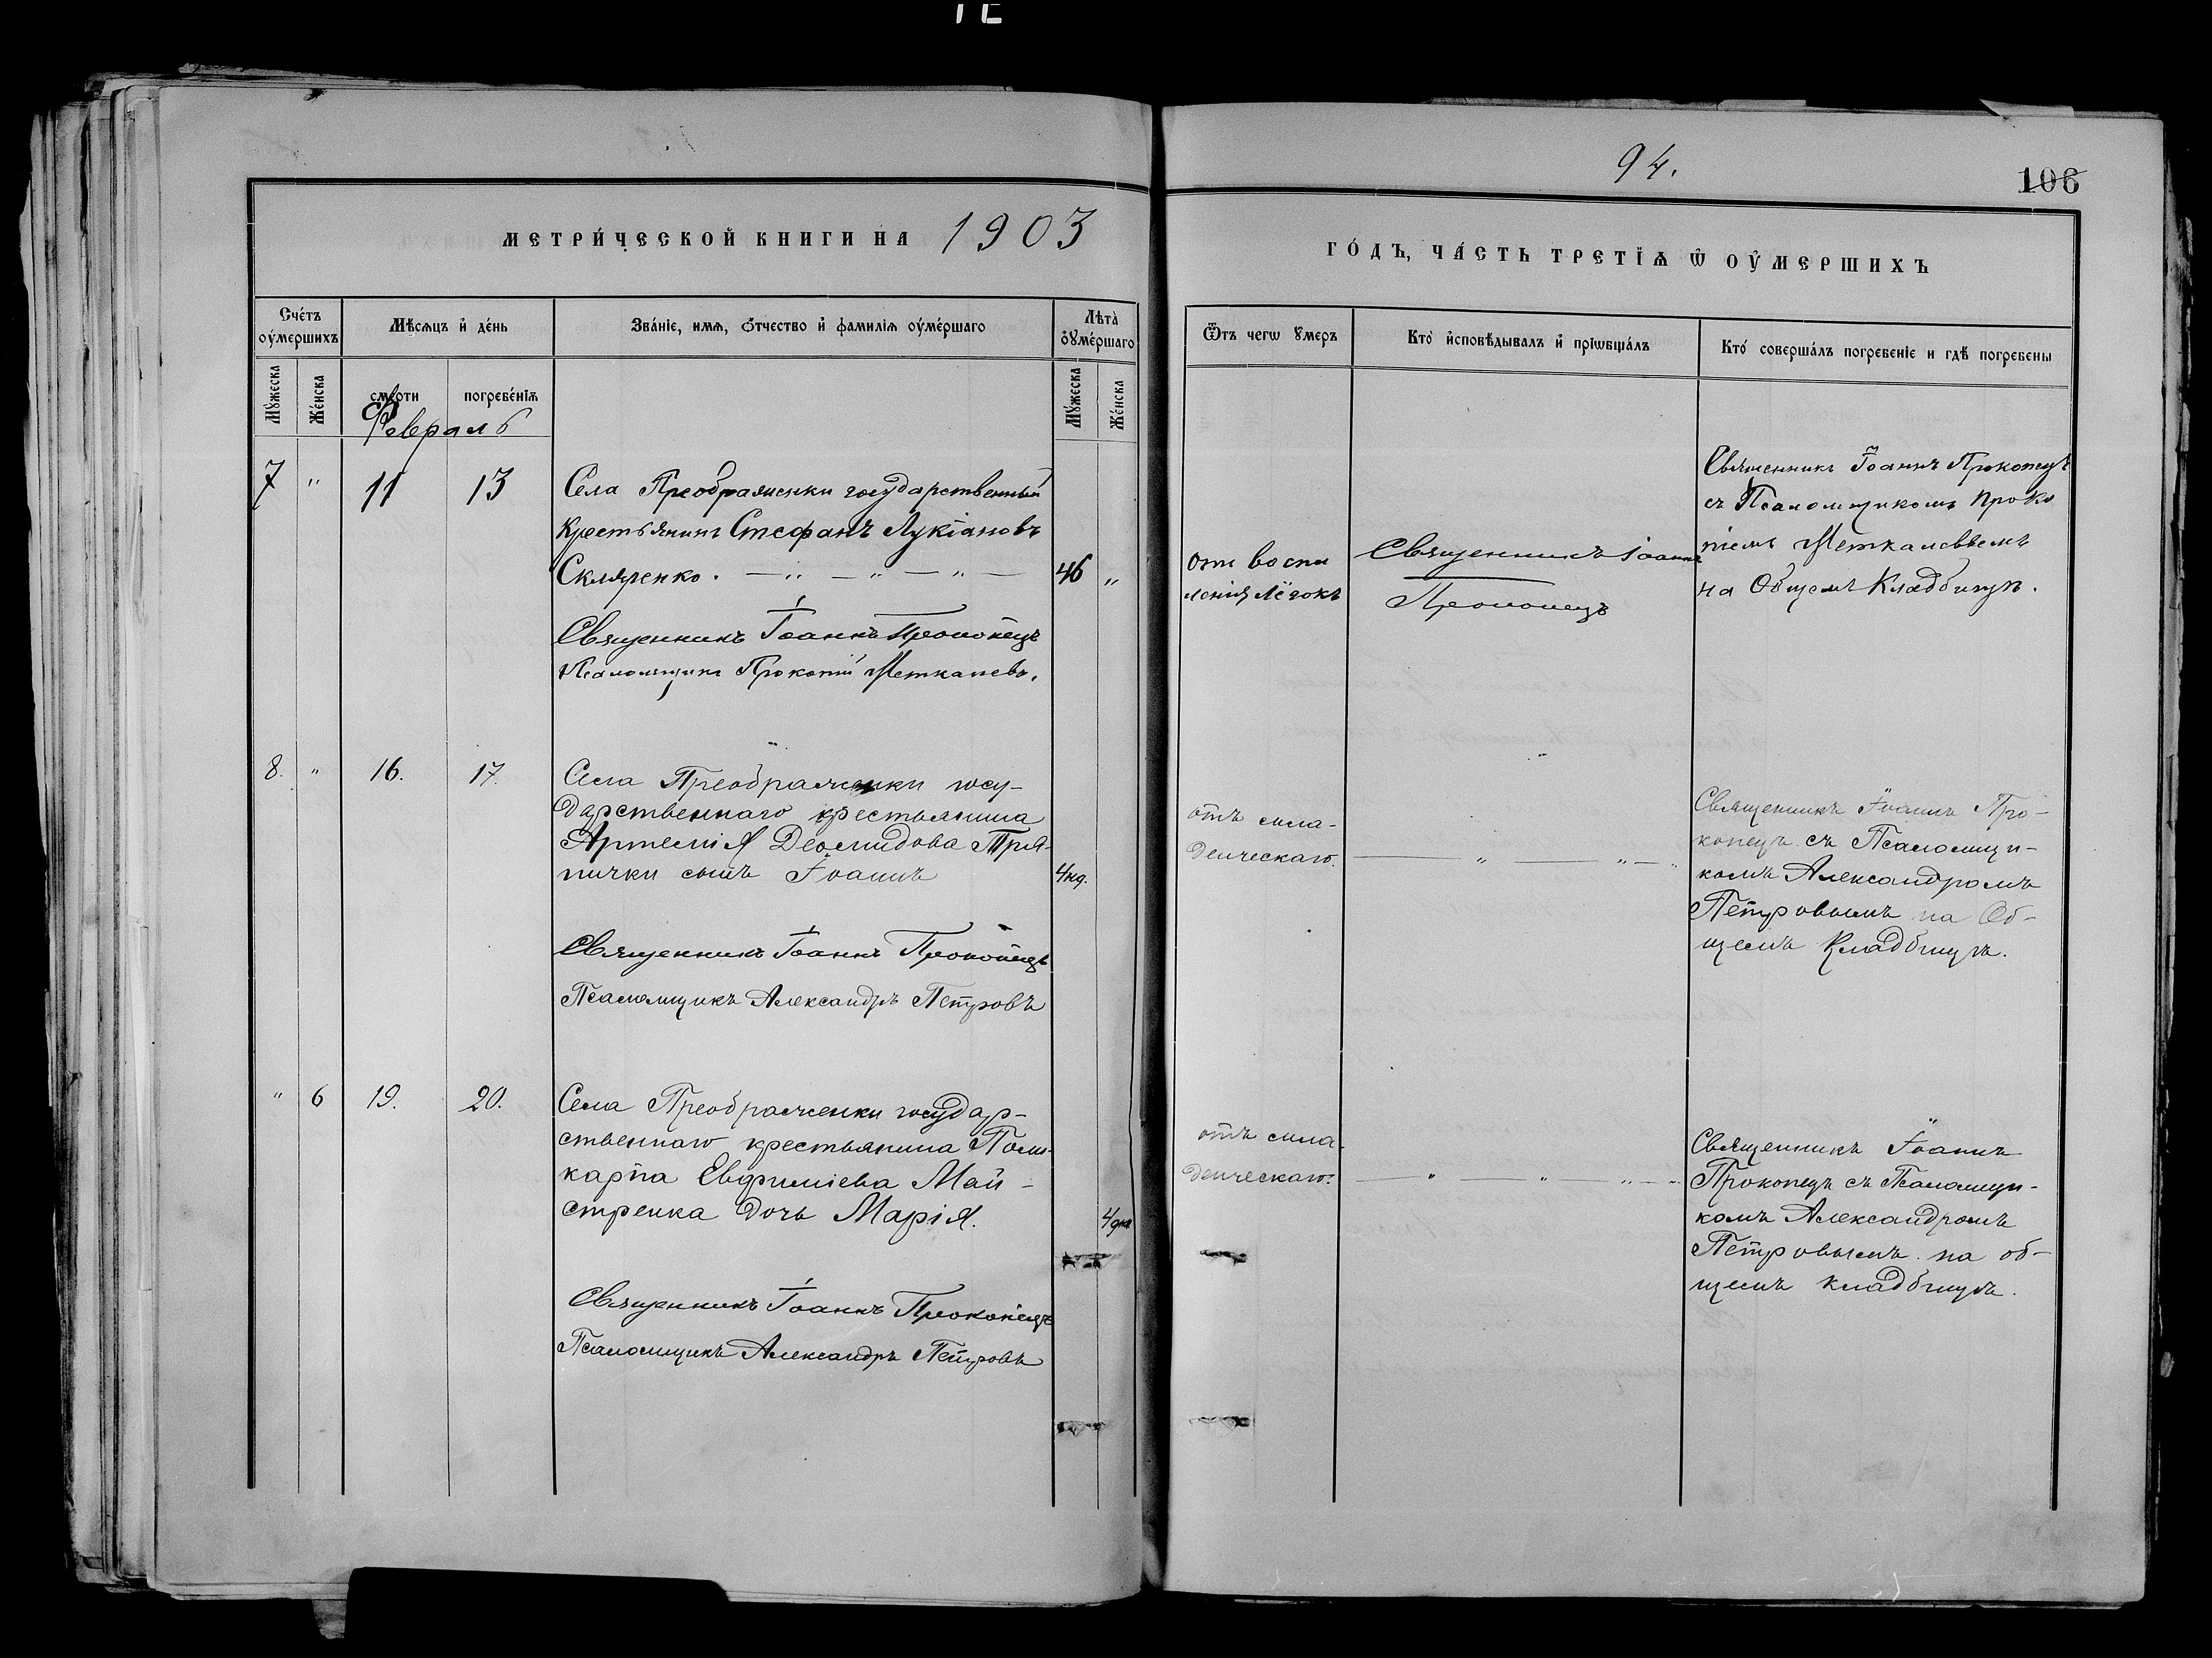 94.
106
МЕТРИ́ЧЕСКОЙ КНИГИ НА 1903
ГО́ДЪ, ЧА́СТЬ ТРЕТІѦ Ѡ ОУ҆МЕРШИХЪ
Сче́тъ оу҆ме́ршихъ
Мѣ́сѧцъ и҆ де́нь
Зва́нїе, имѧ, ѻ҆́тчество и҆ фамилїѧ оу҆ме́ршаго
Лѣта̀ оу҆ме́ршаго
Ѿтъ чегѡ ᲂумеръ
Кто̀ и҆сповѣ́дывалъ и҆ прїѡбща́лъ
Кто́ соверша́лъ погребенїе и гдѣ̀ погребены
Мꙋ́жеска
Же́нска
сме́рти
погребе́нїѧ
Мꙋ́жеска
Же́нска
Февраль
7 " 11 13
Села Преображенки государственный
крестьянинъ Стефанъ Лукіановъ
Скляренко. 46 "
Священникъ Іоаннъ Прокопецъ
Псаломщикъ Прокопій Меткалевъ.
отъ воспа
ленія лёгокъ
Священникъ Іоаннъ
Прокопецъ
Священникъ Іоаннъ Прокопецъ
съ Псаломщикомъ Проко
піемъ Меткалевымъ
на Общемъ Кладбищѣ.
8. " 16. 17.
Села Преображенки госу-
дарственнаго крестьянина
Артемія Деомидова Тря-
пички сынъ Іоаннъ 4 нд.
Священникъ Іоаннъ Прокопецъ
Псаломщикъ Александръ Петровъ
отъ мла-
денческаго.
Священникъ Іоаннъ Про-
копецъ съ Псаломщи-
комъ Александромъ
Петровымъ на Об-
щемъ Кладбищѣ.
" 6 19. 20.
Села Преображенки государ-
ственнаго крестьянина Поли-
карпа Евфиміева Май-
стренка дочь Марія. 4 дня
Священникъ Іоаннъ Прокопецъ
Псаломщикъ Александръ Петровъ
отъ мла-
денческаго.
Священникъ Іоаннъ
Прокопецъ съ Псаломщи-
комъ Александромъ
Петровымъ на об-
щемъ кладбищѣ.